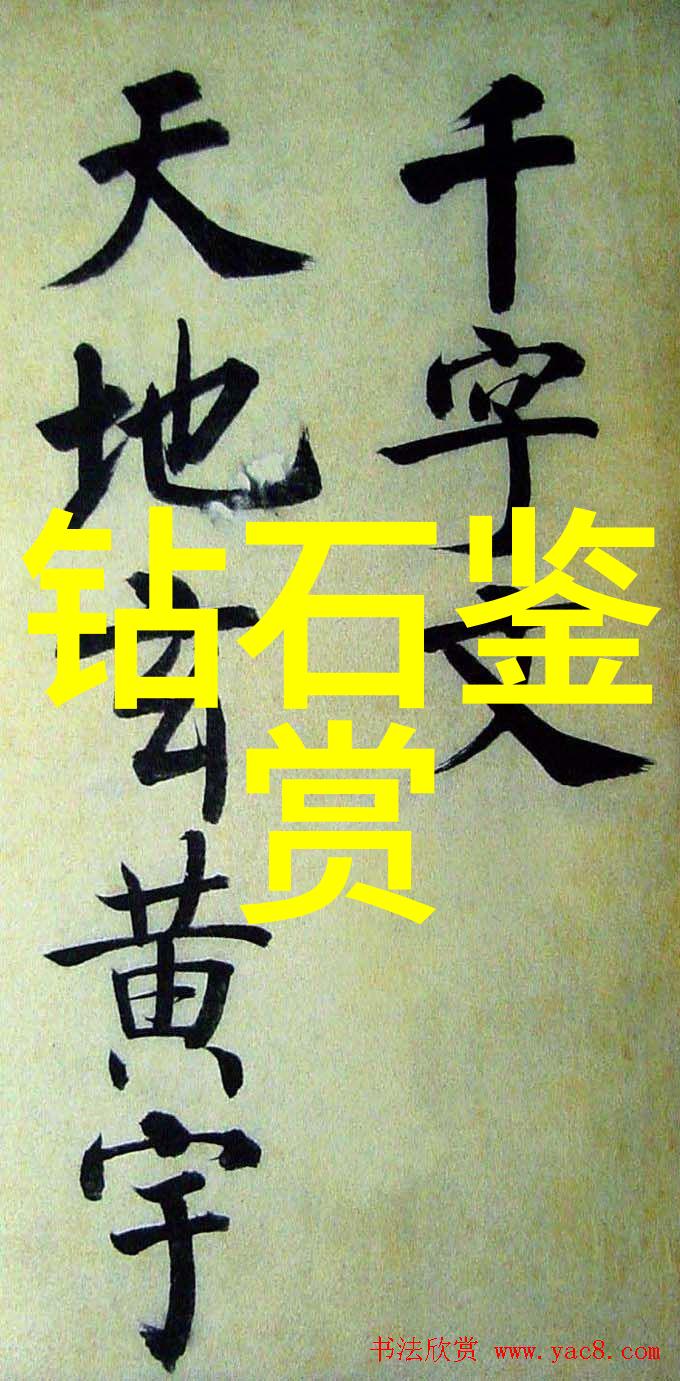 千字文
天地玄黄宇
钻石鉴
赏
书法欣赏 www.yac8.com